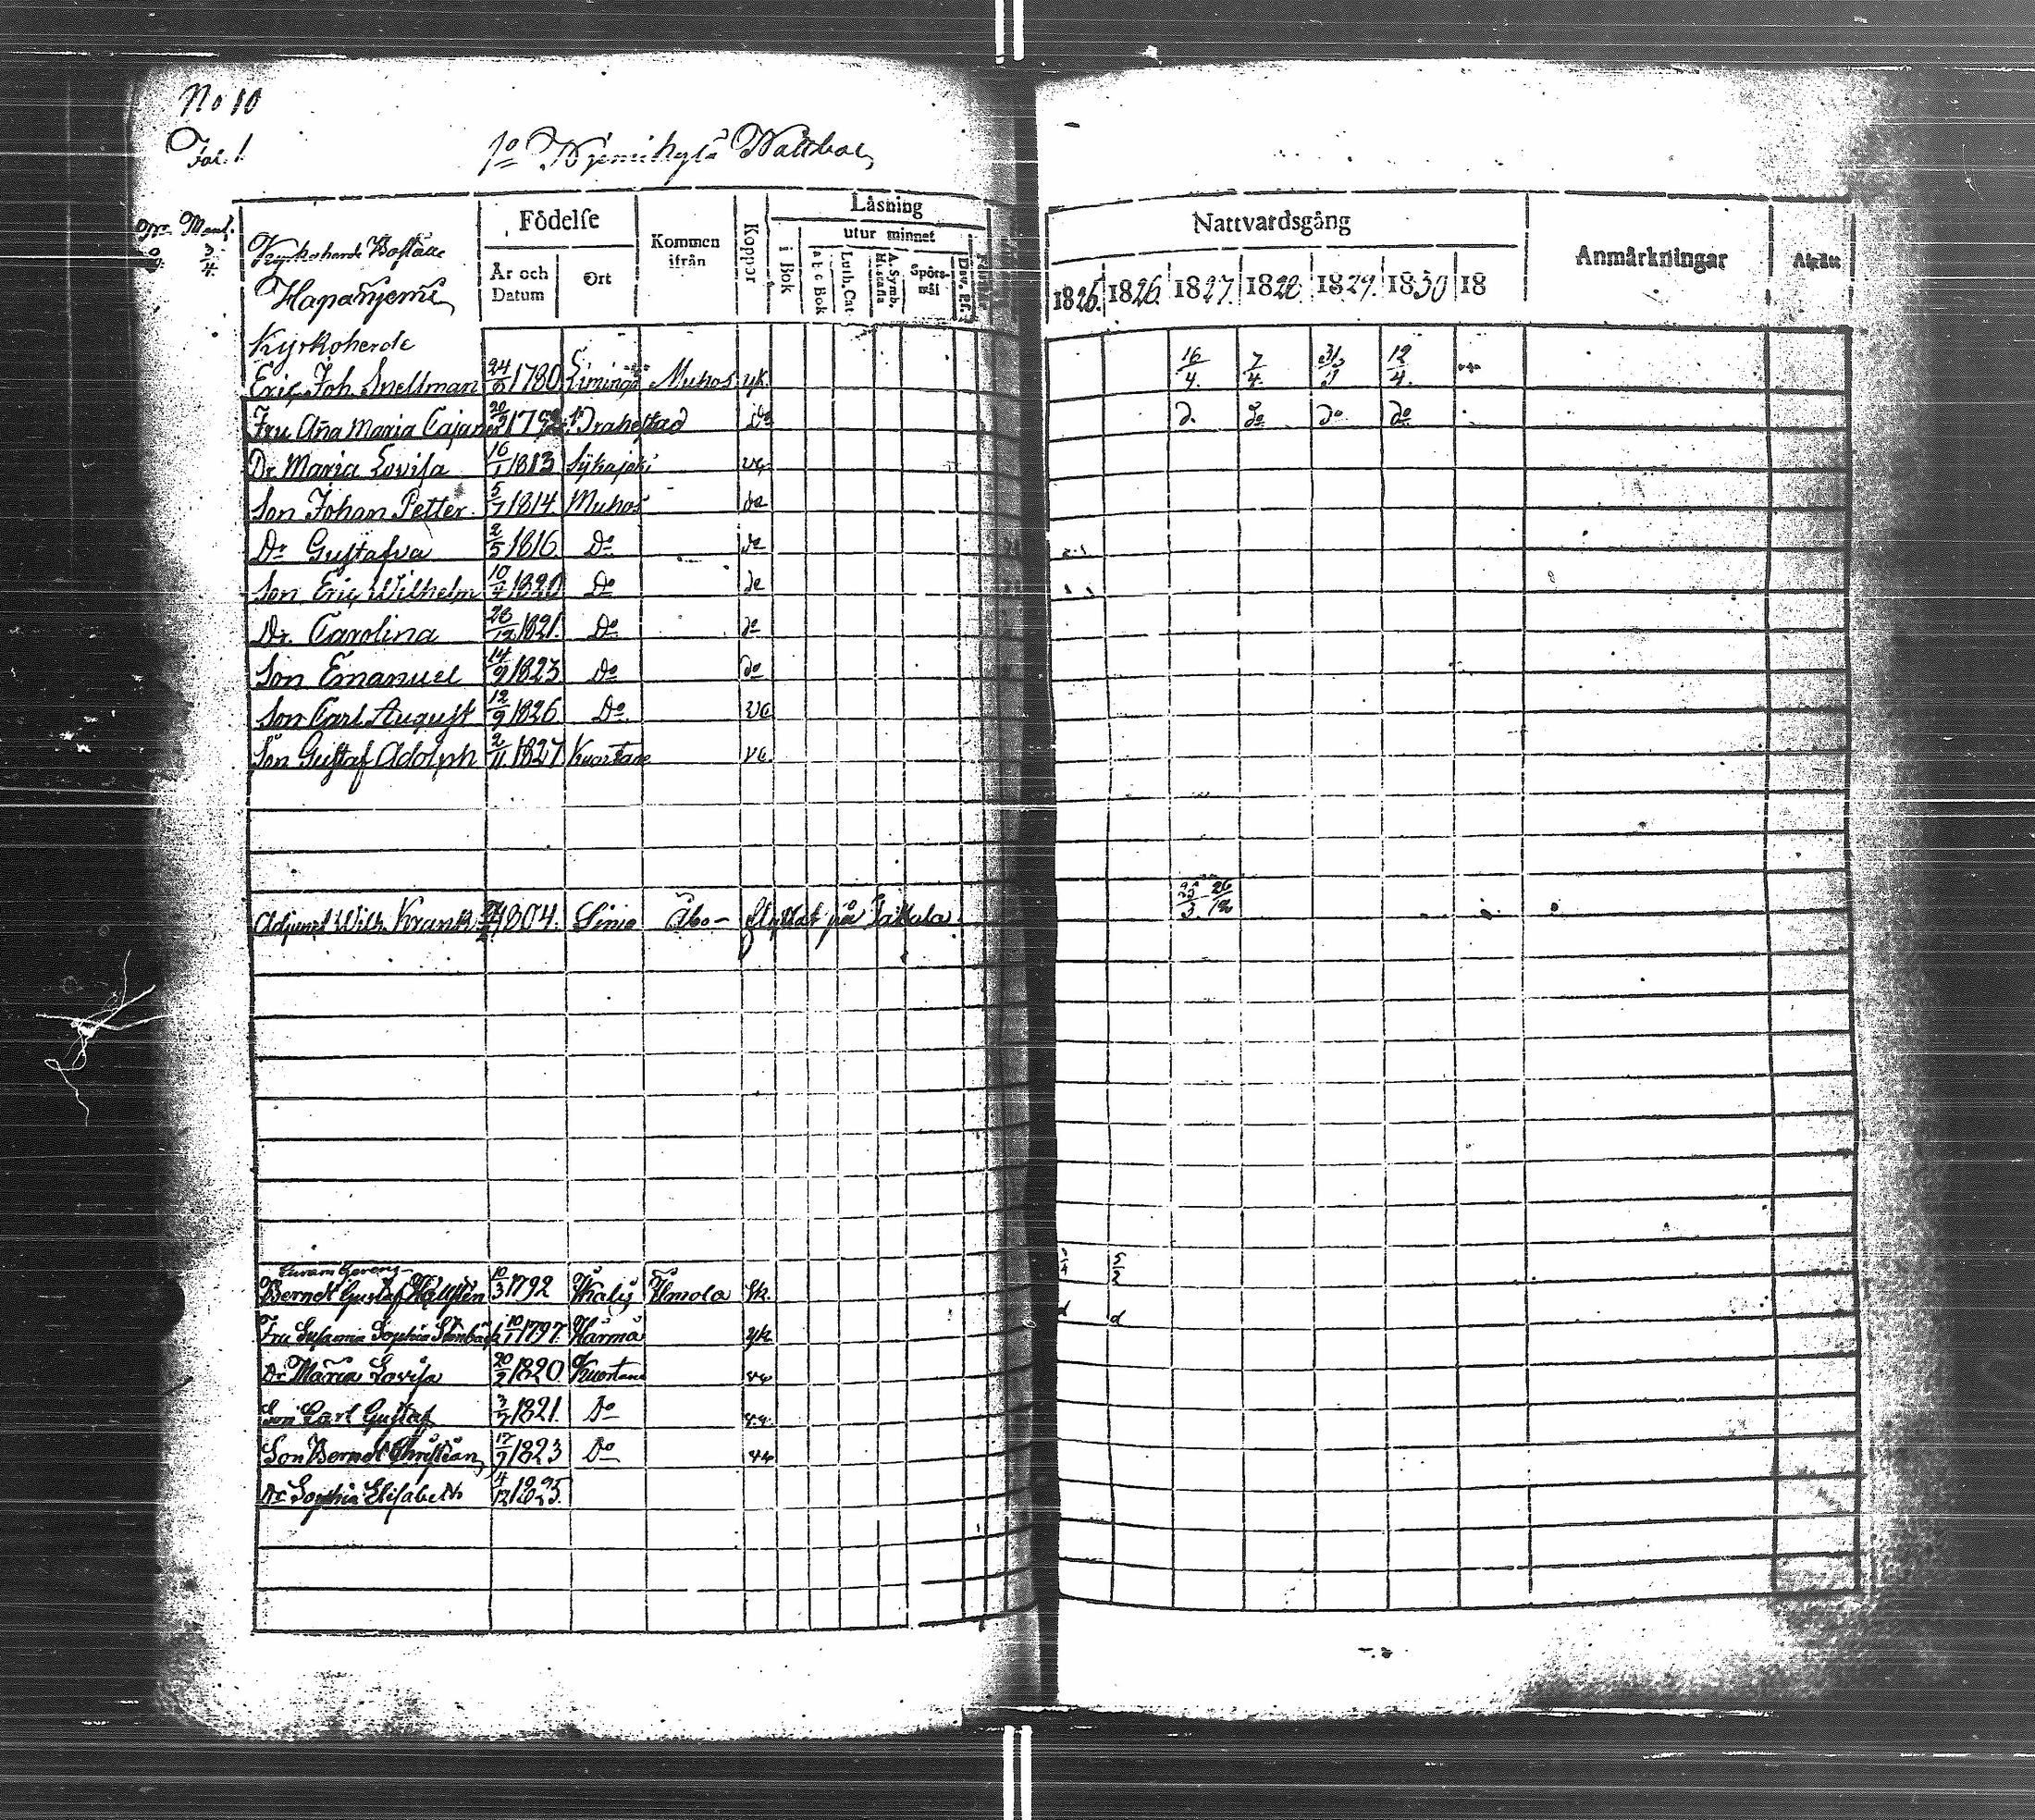 No 10
Fol. 1.
1º Niemikylä Wattbol
No Mantl.
9. 3/4.
Kyrkoherde Boställe
Hapaniemi
Födelse
År och Datum
Ort
Kommen ifrån
Koppor
Läsning
i Bok
utur minnet
a b c Bok
Luth. Cat.
A. Symb.
H. tafla
Spörsmål
Dav. Ps.
Nattvardsgång
1825. 1826. 1827. 1828 1829. 1830 18
Anmärkningar
Kyrkoherde
Eric Joh. Snellman 24/6 1780 Limingo Muhos yk. 16/4. 7/4. 12/4.
Fru Aña Maria Cajan Brahestad Do d. do do do
Dr. Maria Lovisa 16/1 1813 Sijkajoki vc
Son Johan Petter 5/7 1814. Muhos do
Dr Gustafva 2/5 1816 Do do
Son Eric Wilhelm 10/4 1820 Do do
Dr. Carolina 28/12 1821. Do do
Son Emanuel 14/9 1823 Do do
Son Carl August 12/9 1826 Do vc
Son Gustaf Adolph 2/11 1827 Kuortane vc.
Adjunct Wilh. Krank 1804. Simo Åbo - flyttat på Takala 25/3
Bernd Gustaf Hällsten 10/3 1792 Ilmola yk. 5/2
Fru Susanna Sophia Stenbäck 10/1 1797. Härmä yk d d
Dr Maria Lovisa 20/2 1820 Kuortane vc
Son Carl Gustaf 3/7 1821. Do v.c.
Son Berndt Christian 17/7 1823 Do vc
Dr Sophia Elisabeth 4/12 1825.